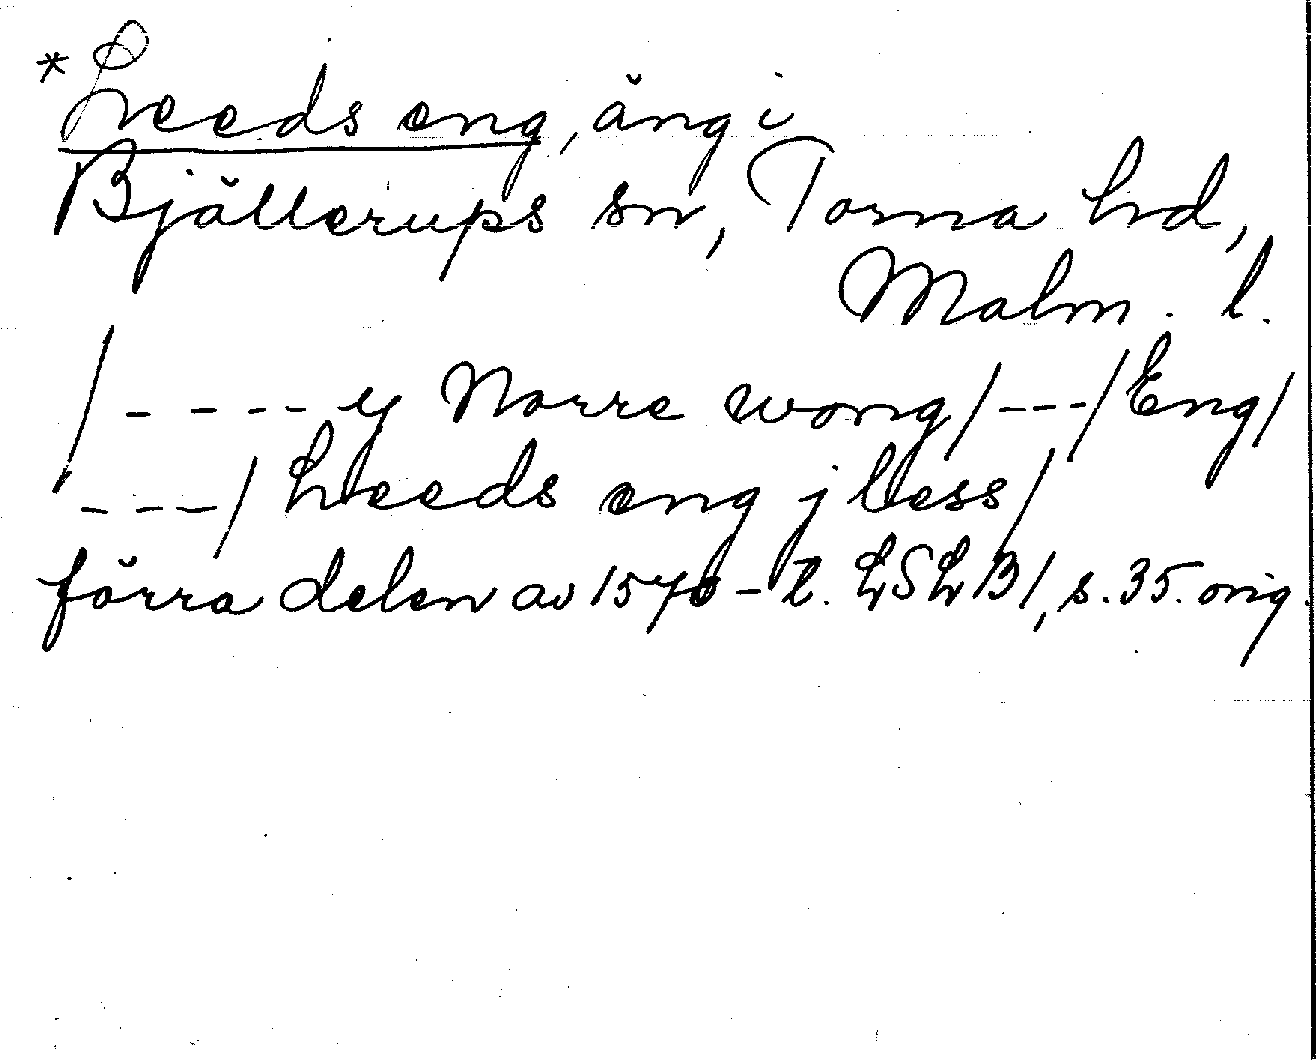 *Heeds eng, äng i
Bjällerups sn, Torna hd,
Malm. l.
/ - - - - y Norre wong/ - - - / Eng/
- - - / heeds eng j less/
förra delen av 1570-t. LSLB1, s. 35. orig.